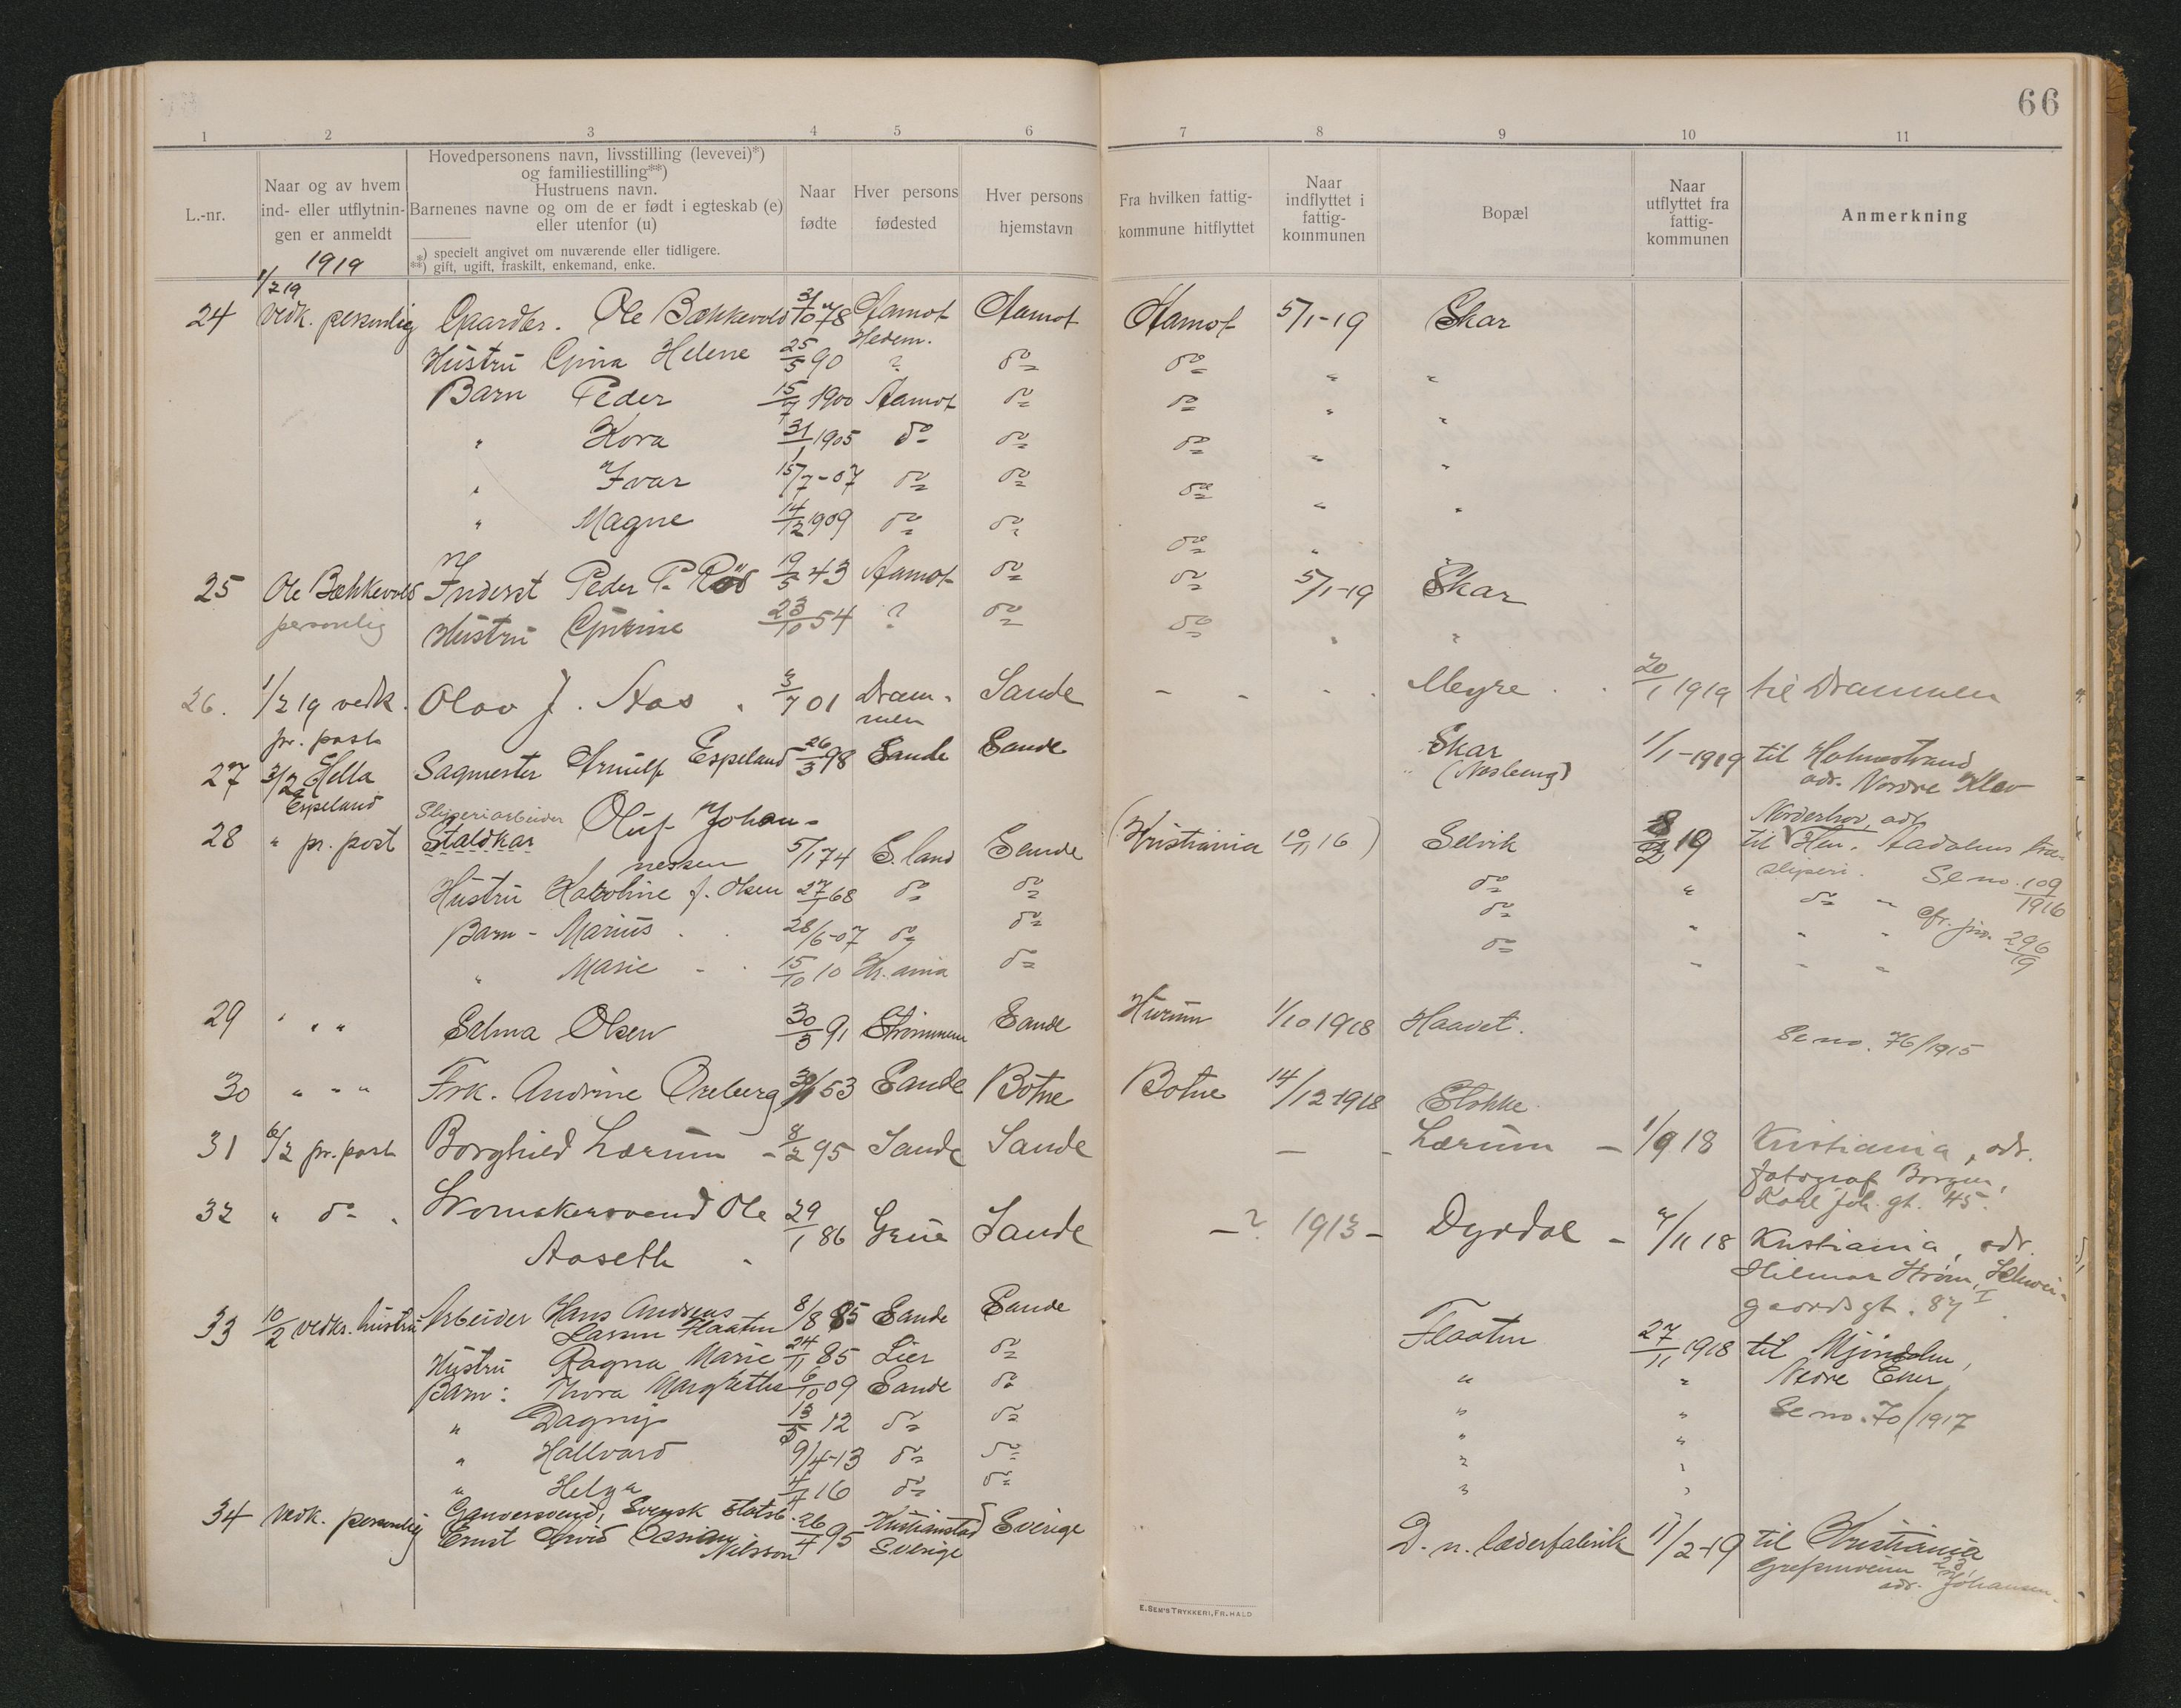 66
1 2 3 4 5 6 7 8 9 10 11
L.-nr.
Naar og av hvem
ind- eller utflytnin-
gen er anmeldt
1919
Hovedpersonens navn, livsstilling (levevei)*)
og familiestilling**)
Hustruens navn.
Barnenes navne og om de er født i egteskab (e)
eller utenfor (u)
*) specielt angivet om nuværende eller tidligere.
**) gift, ugift, fraskilt, enkemand, enke.
Naar
fødte
Hver persons
fødested
Hver persons
hjemstavn
Fra hvilken fattig-
kommune hitflyttet
Naar
indflyttet i
fattig-
kommunen
Bopæl
Naar
utflyttet fra
fattig-
kommunen
Anmerkning
1/2 19
24 vedk. personlig Gaardbr. Ole Bækkevold 31/10 78 Aamot Aamot Aamot 5/1-19 Skar
Hedem.
Hustru Gina Helene 25/5 90 ? do do " "
Barn Peder 15/7 1900 Aamot do do " "
" Kora 31/1 1905 do do do " "
" Ivar 15/7-07 do do do " "
" Magne 14/12 1909 do do do " "
25 Ole Bækkevold Inderst Peder P. Röd 19/5 43 Aamot do do 5/1-19 Skar
personlig Hustru 23/10 54 ? do do " "
26. 1/2 19 vedk. Olav J. Aas 3/7 01 Dram- Sande - - - Meyre 20/1 1919 til Drammen
pr. post men
27 3/2 Hella Sagmester Arnulf Espeland 26/3 98 Sande Sande Skar 1/1-1919 til Holmestrand
Espeland (Nesbeng) adr. Nordre Klev
Sliperiarbeider Oluf Johan- Norderhov, adr.
28 " pr. post Staldkar nessen 5/1 74 S. land Sande (Kristiania 10/11 16) Selvik 8/2 19 til Hen, Aadalens træ-
sliperi. Se no. 109/1916
Hustru Karoline f. Olsen 27/7 68 do do do " do "
cfr. jnr. 296/19
Barn - Marius 28/6-07 do do do " " "
" Marie 15/10 10 Kr.ania do do " " "
29 " " " Selma Olsen 30/3 91 Strømmen Sande Hurum 1/10 1918 Haavet. Se no. 76/1915
30 " " " Frk. Andrine Oreberg 53 Sande Botne Botne 14/12-1918 Stokke
31 6/2 pr. post Borghild Lærum - 8/2 95 Sande Sande - - Lærum - 1/9 18 Kristiania, adr.
fotograf Borgen,
Karl Joh. gt. 45.
32 " do " Skomakersvend Ole 29/1 86 Grue Sande - ? 1913 - Dyrdal - /11 18 Kristiania, adr.
Aaseth Hilmar Strøm, Schwei-
gaards gt. 87 I
33 10/2 vedks. hustru Arbeider Hans Andreas 8/8 85 Sande Sande
Larsen Flaaten Flaaten 27/11 1918 til Mjøndalen,
Hustru Ragna Marie 24/11 85 Lier do " " Nedre Eker
Barn: Thora Margrethe 6/10 09 Sande do " " Se no. 70/1917
" Dagny 13/5 12 do do " "
" Hallvard 9/4-13 do do " "
" Helga 4/4 16 do do " "
34 vedk. personlig Garversvend, Svensk statsb. 26/4 95 Kristianstad Sverige D. n. læderfabrik 11/2-19 til Kristiania
Ernst Arvid Ossian Sverige
Nilsson adr. Johansen.
E. SEM'S TRYKKERI, FR.HALD